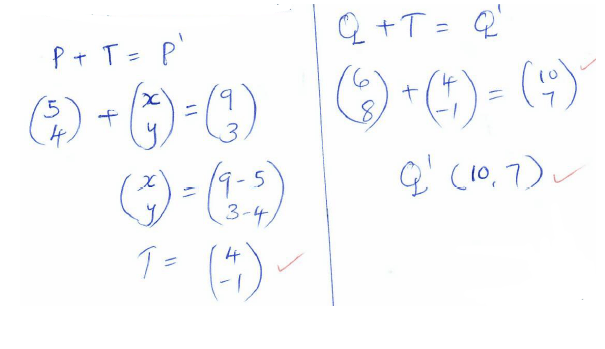 P + T = P'
(5 4) + (x y) = (9 3)
(x y) = (9-5 3-4)
T = (4 -1) ✓
Q + T = Q'
(6 8) + (4 -1) = (10 7) ✓
Q' (10, 7) ✓